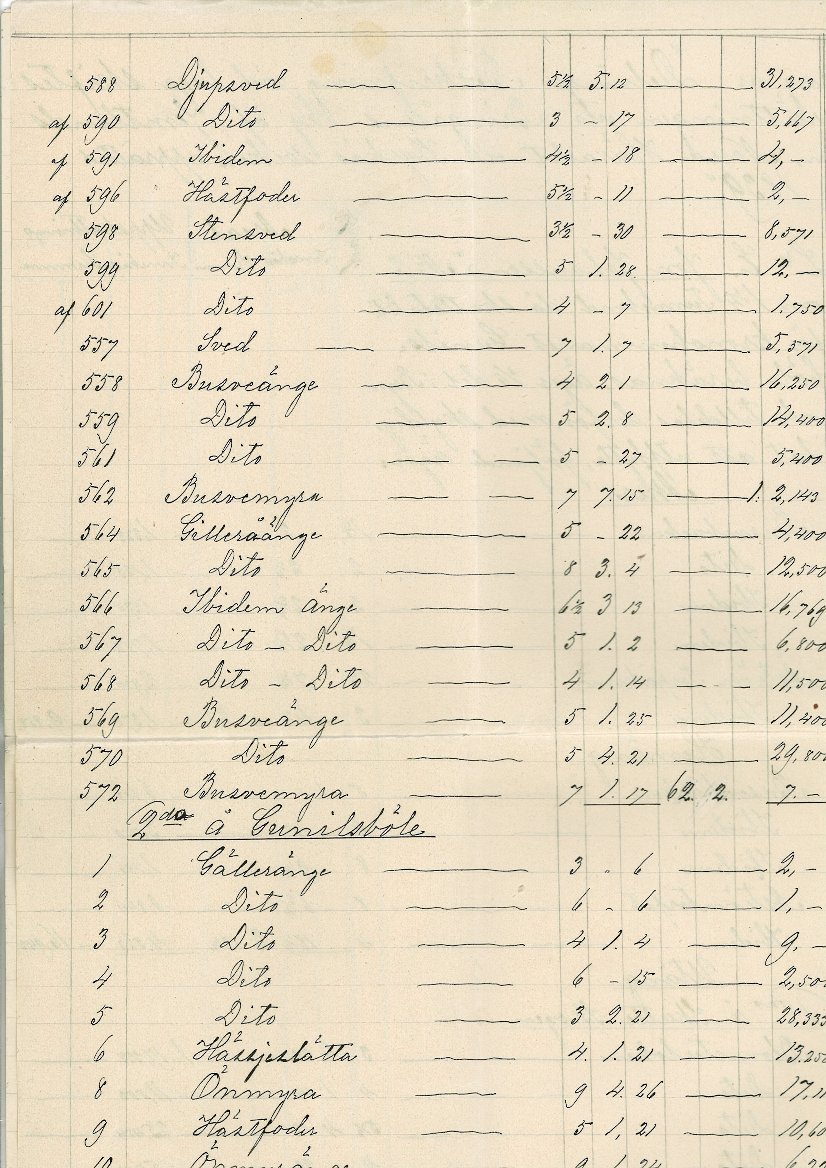 588 Djupsved 5½ 5. 12 31,273
af 590 Dito 3 - 17 5,667
af 591 Ibidem 4½ - 18 4,-
af 596 Hästfoder 5½ - 11 2,-
598 Stensved 3½ - 30 8,571
599 Dito 5 1. 28 12,-
af 601 Dito 4 - 7 1.750
557 Sved 7 1. 7 5,571
558 Busveänge 4 2 1 16,250
559 Dito 5 2. 8 14,400
561 Dito 5 - 27 5,400
562 Busvemyra 7 7. 15 1. 2,143
564 Gilleråänge 5 - 22 4,400
565 Dito 8 3. 4 12,500
566 Ibidem änge 6½ 3 13 16,769
567 Dito - Dito 5 1. 2 6,800
568 Dito - Dito 4 1. 14 11,500
569 Busveänge 5 1. 25 11,400
570 Dito 5 4. 21 29,800
572 Busvemyra 7 1. 17 62. 2. 7.-
2do å Gunilsböle
1 Gälleränge 3 - 6 2,-
2 Dito 6 - 6 1,-
3 Dito 4 1. 4 9,-
4 Dito 6 - 15 2,500
5 Dito 3 2. 21 28,333
6 Hässjeslätta 4. 1. 21 13.250
8 Önmyra 9 4. 26 17,11
9 Hästfoder 5 1, 21 10,60
10 9 1. 24